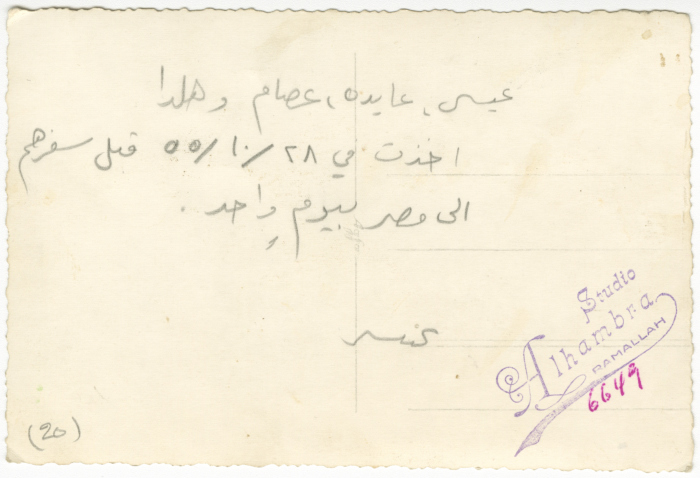 عيسى، عايده، عصام وهلدا
اخذت في ٢٨/١٠/٥٥ قبل سفرهم
الى مصر بيوم واحد.
Studio
Alhambra
RAMALLAH
6649
(20)